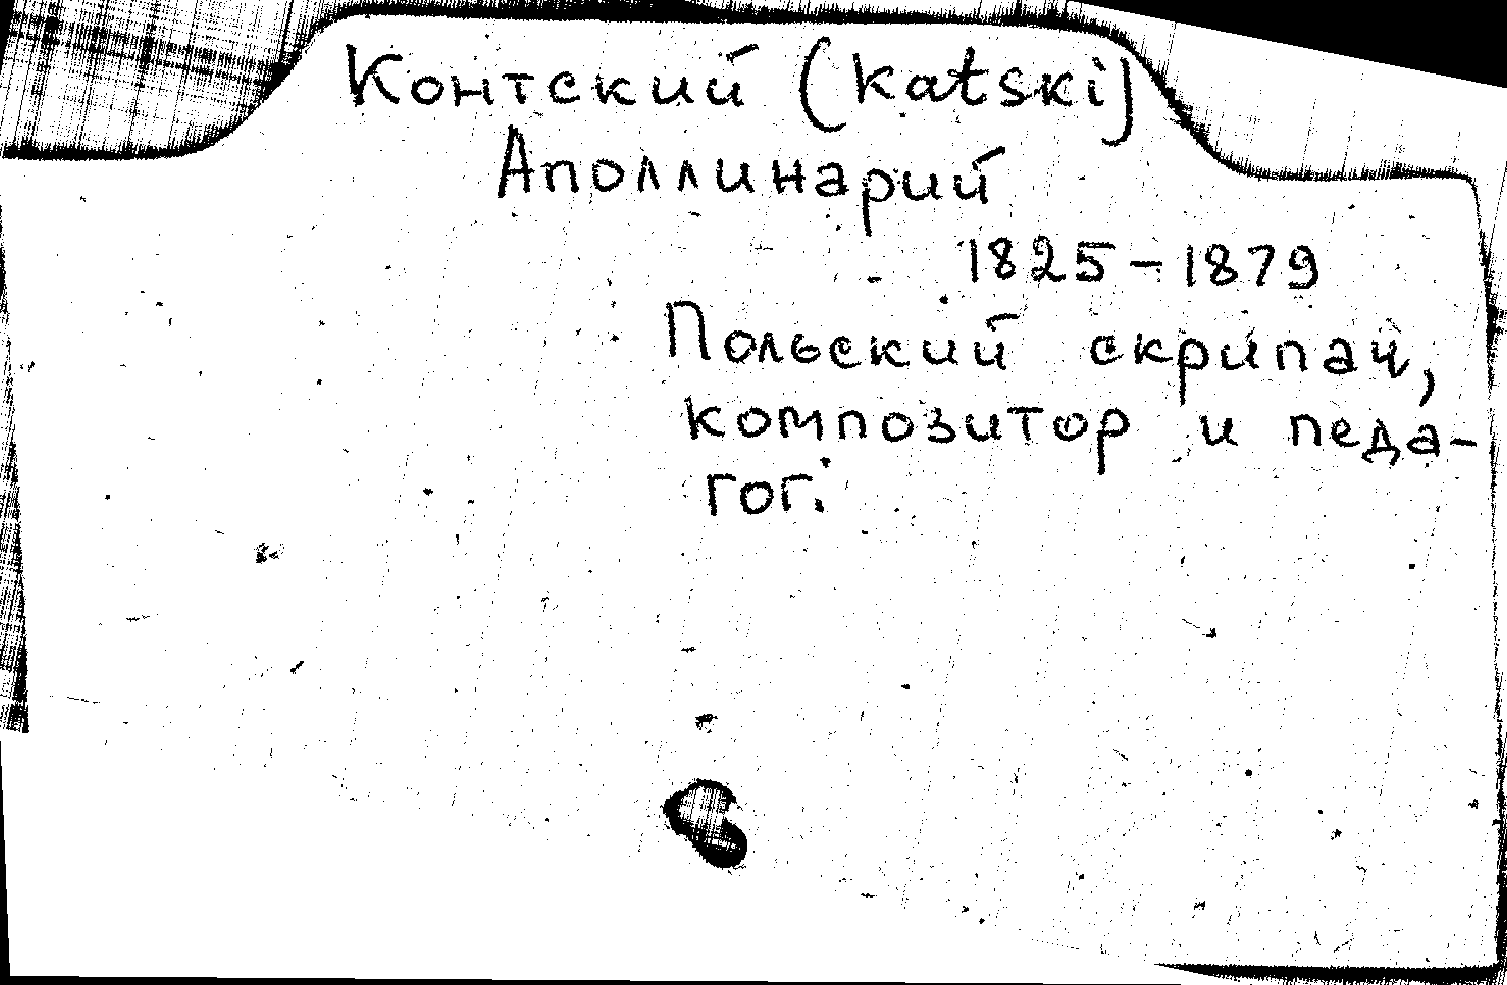 Контский (Katski)
Аполлинарий
1825-1879
Польский скрипач,
композитор и педа-
гог.